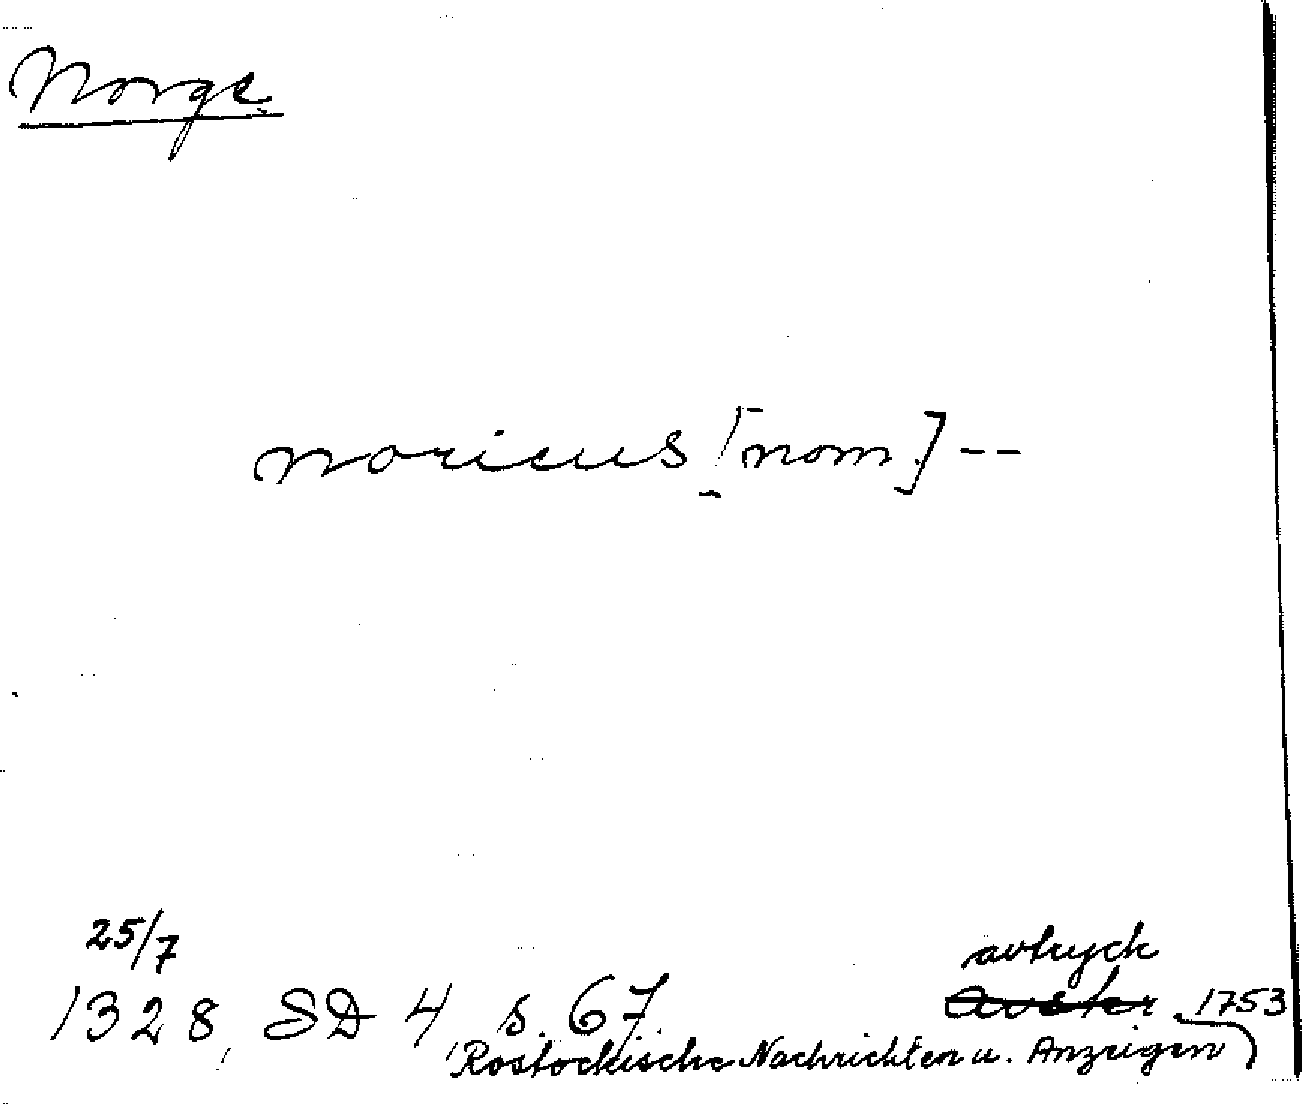 Norge
noricus [nom] --
25/7
avtryck
1328, SD 4 s. 67. avskr. 1753
(Rostockische Nachrichten u. Anzeigen)